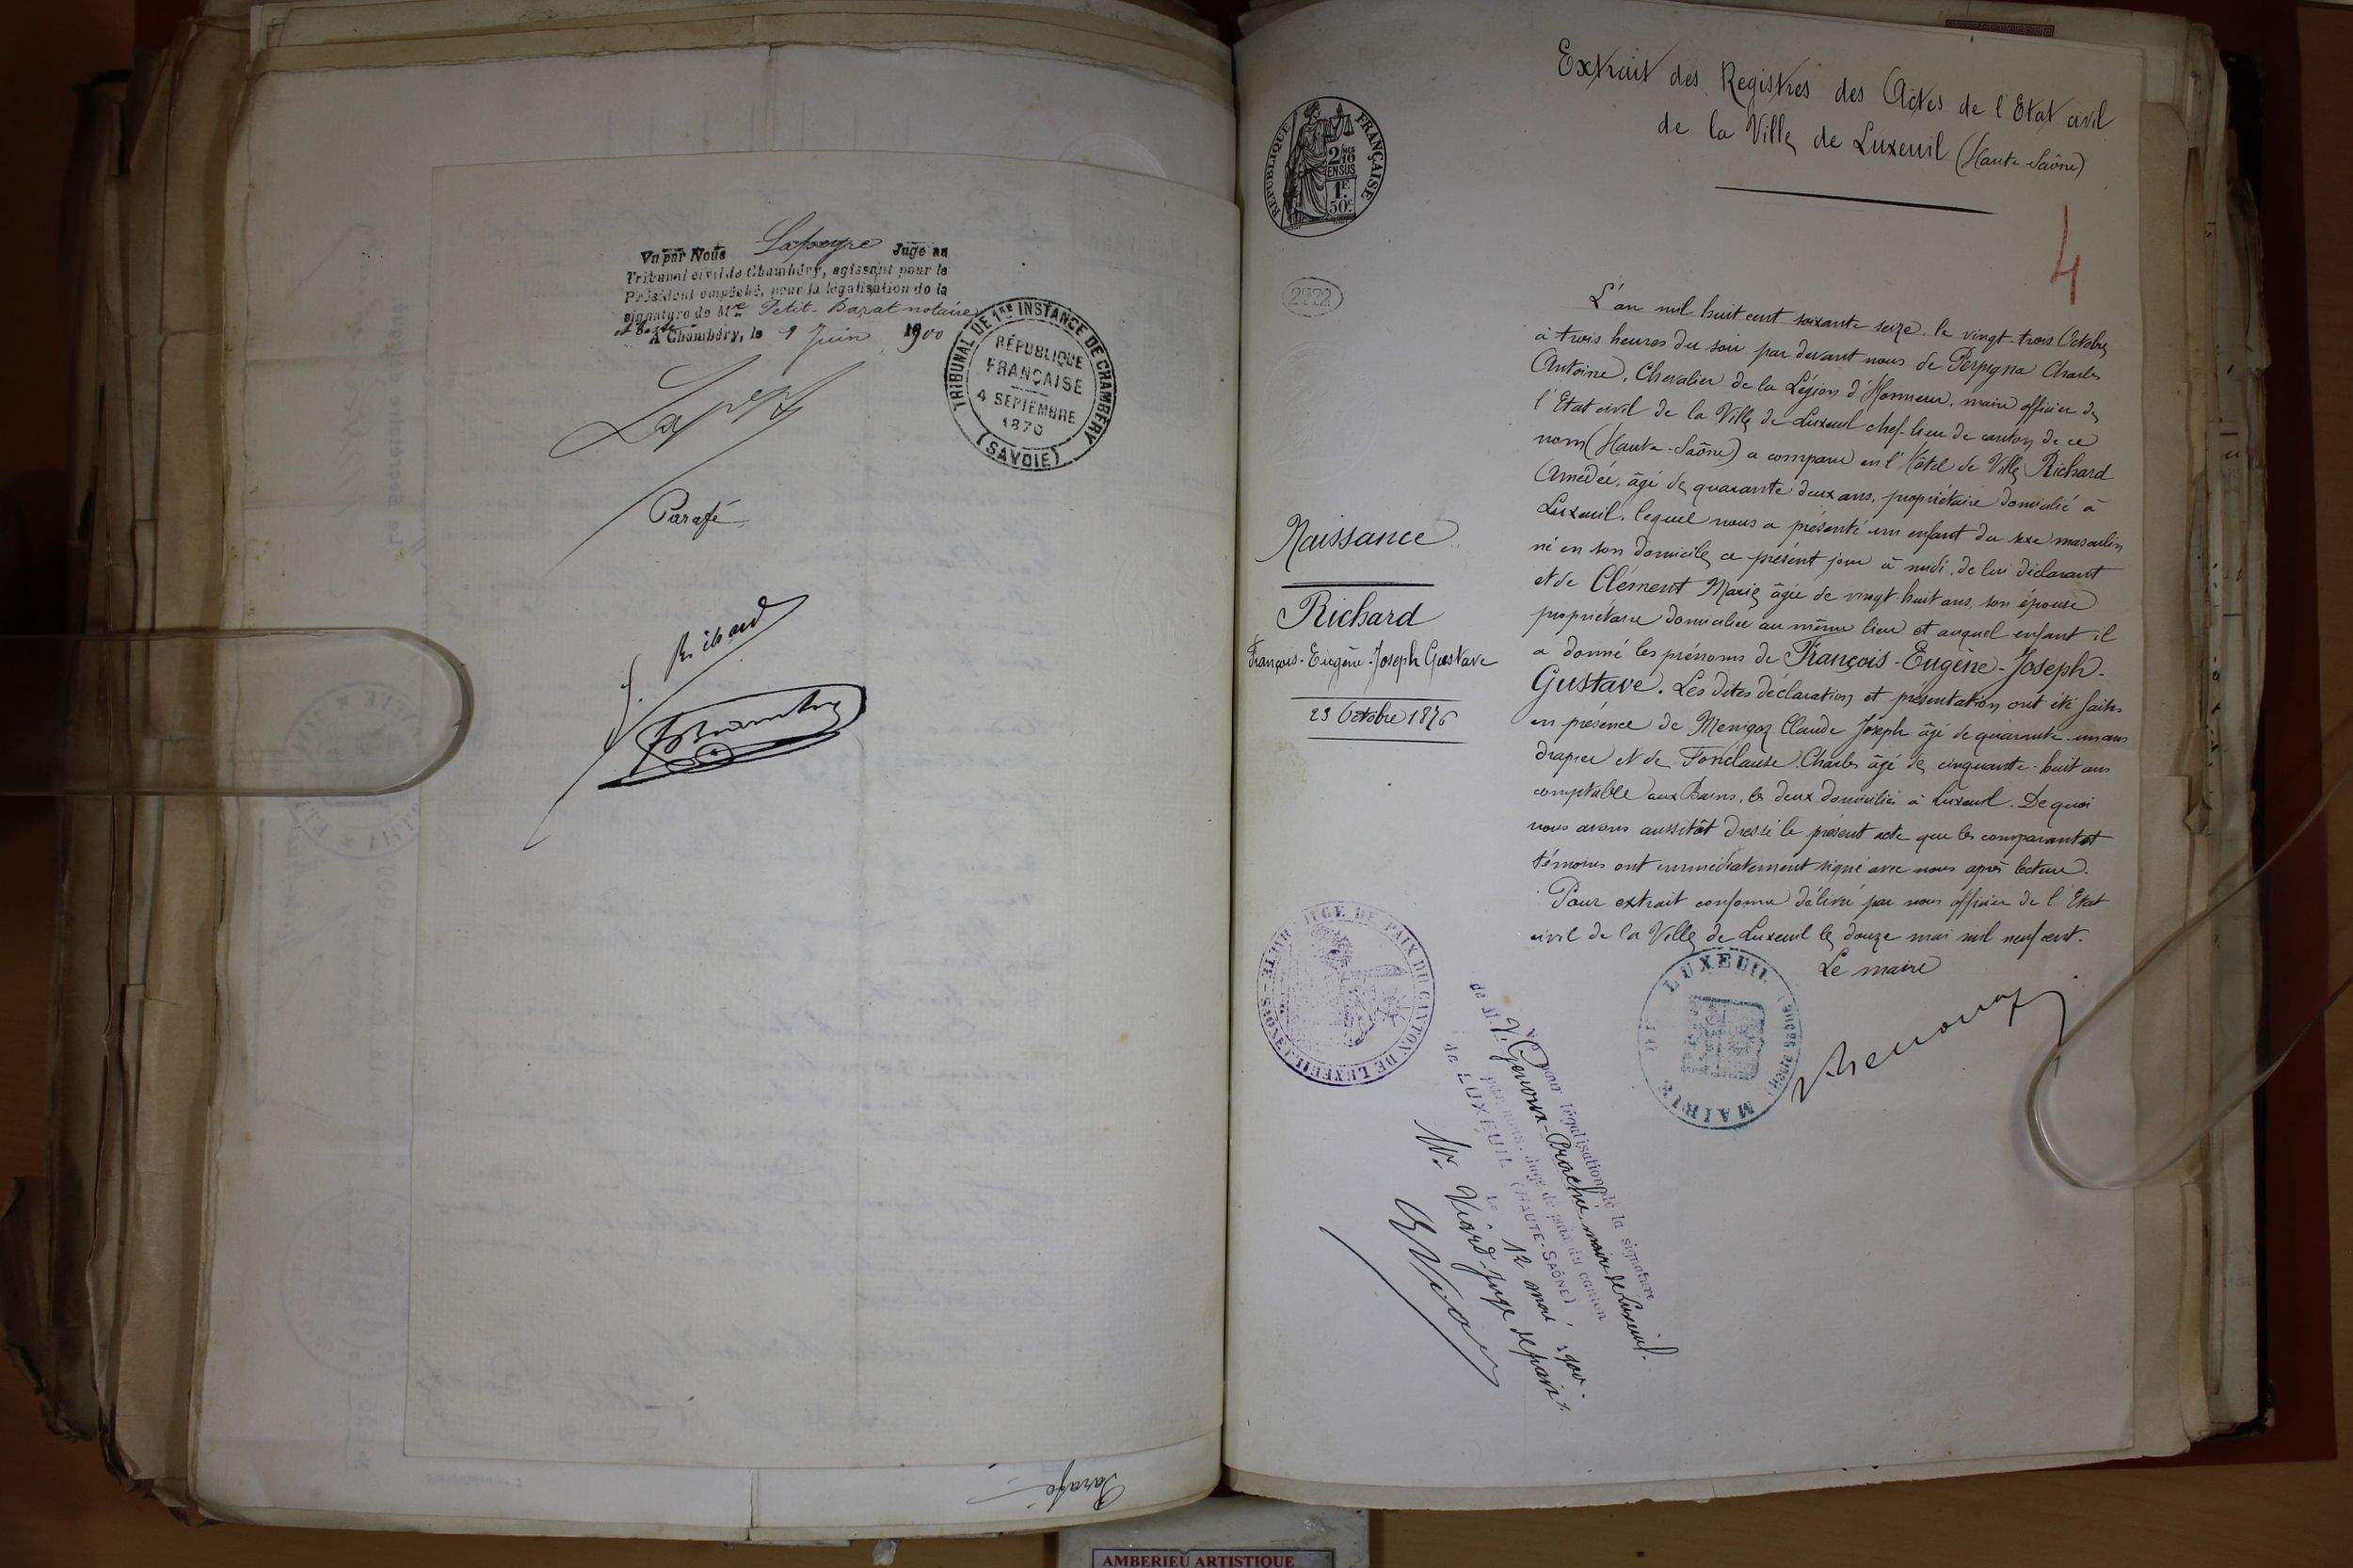 Vu par Nous Lapeyre Juge au
Tribunal civil de Chambéry, agissant pour le
Président empêché, pour la légalisation de la
signature de Me Petit-Barat notaire
A Chambéry, le 1 Juin 1900
TRIBUNAL DE 1RE INSTANCE DE CHAMBÉRY
(SAVOIE)
RÉPUBLIQUE
FRANÇAISE
4 SEPTEMBRE
1870
Parafé
J. Richard
Parafé
Extrait des Registres des Actes de l'Etat civil
de la Ville de Luxeuil (Haute-Saône)
RÉPUBLIQUE FRANÇAISE
2/10
EN SUS
1F.
50c
2772
4
Naissance
Richard
François-Eugène-Joseph Gustave
23 Octobre 1876
L'an mil huit cent soixante seize, le vingt-trois Octobre
à trois heures du soir par devant nous de Perpigna Charles
Antoine, Chevalier de la Légion d'Honneur, maire officier de
l'Etat civil de la Ville de Luxeuil chef-lieu de canton de ce
nom (Haute-Saône) a comparu en l'Hôtel de Ville Richard
Amédée, âgé de quarante deux ans, propriétaire domicilié à
Luxeuil, lequel nous a présenté un enfant du sexe masculin
né en son domicile ce présent jour à midi, de lui déclarant
et de Clément Marie âgée de vingt-huit ans, son épouse
propriétaire domiciliée au même lieu et auquel enfant il
a donné les prénoms de François-Eugène-Joseph-
Gustave. Les dites déclaration et présentation ont été faites
en présence de Menigoz Claude Joseph âgé de quarante-un ans
drapier et de Fonclause Charles âgé de cinquante-huit ans
comptable aux Bains, les deux domiciliés à Luxeuil. De quoi
nous avons aussitôt dressé le présent acte que les comparant et
témoins ont immédiatement signé avec nous après lecture.
Pour extrait conforme délivré par nous officier de l'Etat
civil de la Ville de Luxeuil le douze mai mil neuf cent.
Le maire
MAIRIE DE LUXEUIL
JUGE DE PAIX DU CANTON DE LUXEUIL HAUTE-SAÔNE
Vu pour légalisation de la signature
de M. V. Genoux-Prachée, maire de Luxeuil.
par nous, Juge de paix du canton
de LUXEUIL (HAUTE-SAÔNE)
le 12 mai 1900.
Mr. Viard, juge de paix
AMBERIEU ARTISTIQUE